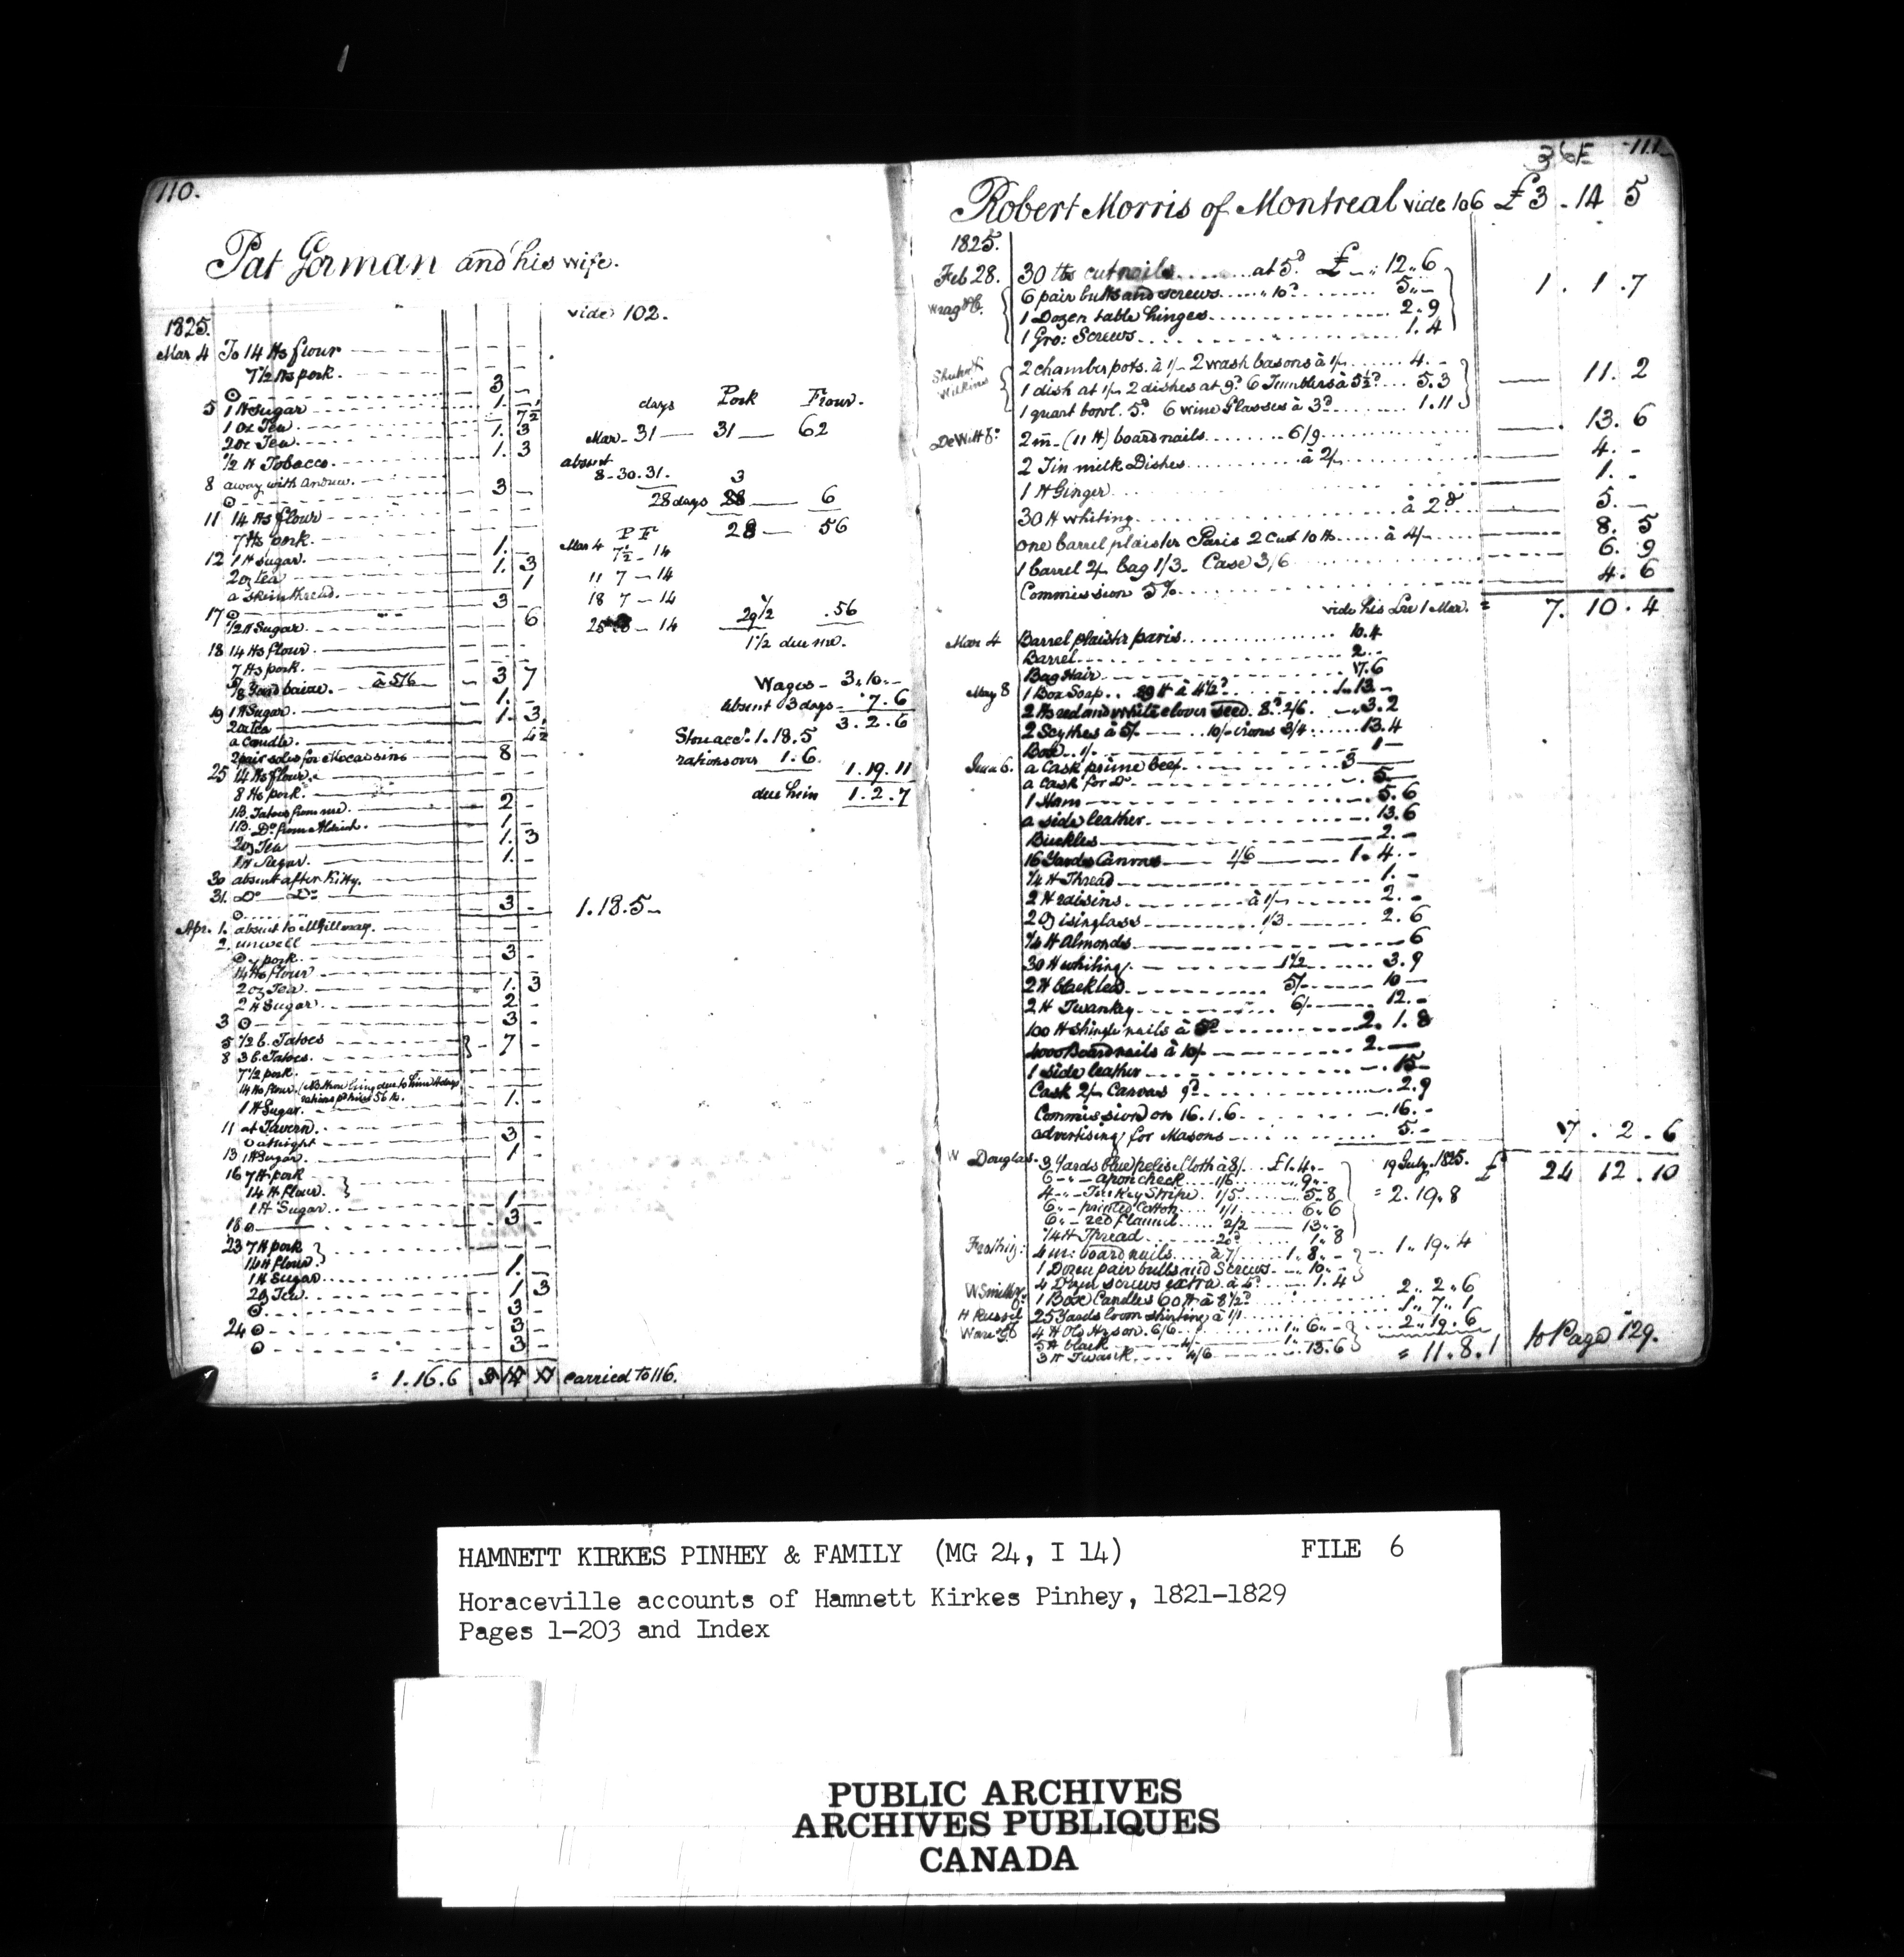 110.
Pat Gorman and his wife.
vide 102.
1825.
Mar 4 To 14 lbs flour
7 1/2 lbs pork.
⊙ 3 -
5 1 lb Sugar 1. -
1 oz Tea 7 1/2
2 oz Tea 1. 3
1/2 lb Tobacco. 1. 3
8 away with Andrew.
⊙ 3 -
11 14 lbs flour
7 lbs pork.
12 1 lb sugar. 1. -
2 oz tea 1. 3
a skein thread. 1
17 ⊙ 3 -
1/2 lb Sugar. 6
18 14 lbs flour.
7 lbs pork.
Yard baize. à 5/6 3 7
19 1 lb Sugar. 1. -
2 oz tea 1. 3
a Candle. 4 1/2
2 pair soles for Mocassins 8 -
25 14 lbs flour.
8 lbs pork.
1 B. Tatoes from me. 2 -
1 B. Do. from Aldrich. 1 -
2 oz Tea 1. 3
1 lb Sugar. 1. -
30 absent after Kitty.
31. Do Do
⊙ 3 - 1.18.5-
Apr. 1. absent to
2. unwell
⊙ pork. 3 -
14 lbs flour
2 oz Tea. 1. 3
2 lb Sugar. 2 -
3 ⊙ 3 -
5 1/2 b. Tatoes
8 3 b. Tatoes. } 7 -
7 1/2 pork
14 lbs flour.
1 lb Sugar. 1. -
11 at Tavern.
⊙ at night 3 -
13 1 lb Sugar. 1 -
16 7 lb pork
14 lb flour. }
1 lb Sugar. 1 -
18 ⊙ 3 -
23 7 lb pork
14 lb flour. }
1 lb Sugar. 1.
2 oz Tea. 1 3
⊙ 3 -
24 ⊙ 3 -
⊙ 3 -
= 1.16.6 carried to 116.
days Pork Flour.
Mar - 31 — 31 — 62
absent
8 - 30. 31. 3
28 days 6
28 — 56
P F
Mar 4 7 1/2 - 14
11 7 - 14
18 7 - 14
25 8 - 14 29 1/2 .56
1 1/2 due me.
Wages - 3.10.-
Absent 3 days - 7.6
3.2.6
Store acct. 1.18.5
rations over 1.6.
1.19.11
due him 1.2.7
111
Robert Morris of Montreal vide 106 £3.14 5
1825.
Feb 28. 30 lbs cut nails at 5d £ - 12.6
6 pair butts and screws 10d 5.-
1 Dozen table hinges 2.9
1 Gro: Screws 1.4 } 1.1.7
2 chamber pots. à 1/- 2 wash basons à 1/- 4.-
1 dish at 1/- 2 dishes at 9d 6 Tumblers à 5 1/2d 5.3
1 quart bowl. 5d 6 wine Glasses à 3d 1.11 } 11.2
DeWitt 2 m. (11 lb) board nails 6/9 13.6
2 Tin milk Dishes à 2/- 4.-
1 lb Ginger 1.-
30 lb whiting à 2d 5.-
one barrel plaister Paris 2 Cwt 10 lb à 4/- 8.5
1 barrel 2/- bag 1/3 Case 3/6 6.9
Commission 5% 4.6
vide his Lre 1 Mar. = 7.10.4
Mar 4 Barrel plaistr paris 10.4
Barrel 2.-
Bag Hair 7.6
May 8 1 Box Soap à 4 1/2d 1.13.-
2 lbs red and white clover seed. 8d 2/6 3.2
2 Scythes à 5/- 10/- irons 3/4 13.4
Box. 1/- 1-
June 6. a Cask prime beef 3
a cask for Do 5-
1 Ham 5.6
a side leather 13.6
Buckles 2.-
16 Yards Canvas 1/6 1.4.-
1/4 lb Thread 1.-
2 lb raisins à 1/- 2.-
2 oz isinglass 1/3 2.6
1/4 lb Almonds 6
30 lb whiting 1 1/2 3.9
2 lb black lea 5/- 10-
2 lb Twankey 6/- 12.-
100 lb Shingle nails à 5d 2.1.8
4000 Board nails à 10/- 2.-
1 side leather 15-
Cask 2/- Canvas 9d 2.9
Commission on 16.1.6 16.-
advertising for Masons 5.- 17.2.6
W Douglas. 3 Yards blue pelise Cloth à 8/- £1.4.- 19 July. 1825. £ 24 12.10
6 - apron check 1/6 9.-
4 - Turkey Stripe 1/5 5.8 = 2.19.8
6 - printed Cotton 1/1 6.6
6 - red flannel 2/2 13.-
1/4 lb Thread 20d 1.8
4 m: board nails à 7/ 1.8.- 1.19.4
1 Dozen pair butts and Screws 10.-
4 Dozn screws extra à 4d 1.4
W Smith 1 Box Candles 60 lb à 8 1/2d 2.2.6
H Russel 25 Yards loom shirting à 1/1 1.7.1
4 lb Old Hyson. 6/6 1.6.- 2.19.6
5 lb black 4/- 1.-
3 lb Twank. 4/6 13.6 = 11.8.1 to Page 129.
HAMNETT KIRKES PINHEY & FAMILY (MG 24, I 14) FILE 6
Horaceville accounts of Hamnett Kirkes Pinhey, 1821-1829
Pages 1-203 and Index
PUBLIC ARCHIVES
ARCHIVES PUBLIQUES
CANADA